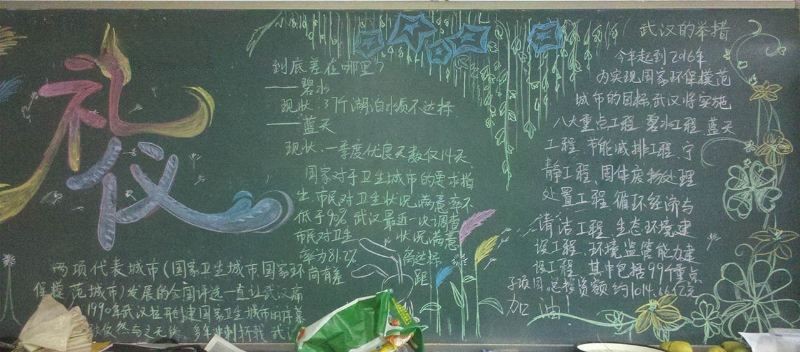 礼仪
到底差在哪里?
——碧水
现状:3个湖泊水质不达标
——蓝天
现状:一季度优良天数仅14天
国家对于卫生城市的要求指
生:市民对卫生状况满意率不
低于90% 武汉最近一次调查
市民对卫生状况满意
率为81.2% 离达标
尚有差
距
两项代表城市(国家卫生城市国家环
保模范城市)发展的全国评选一直让武汉痛
1990年武汉拉开创建国家卫生城市的序幕
仍然与之无缘
武汉的举措
今年起到2016年
为实现国家环保模范
城市的目标武汉将实施
八大重点工程 碧水工程 蓝天
工程 节能减排工程 宁
静工程 固体废物处理
处置工程 循环经济与
清洁工程 生态环境建
设工程 环境监管能力建
设工程 其中包括99个重点
子项目,总投资额约1014.66亿元
加油!